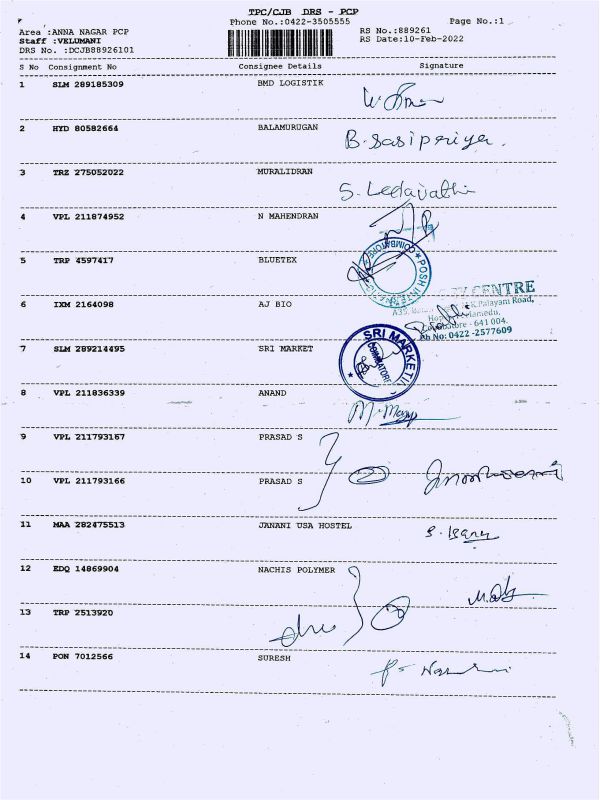 TPC/CJB DRS - PCP
Phone No.:0422-3505555 Page No.:1
Area :ANNA NAGAR PCP RS No.:889261
Staff :VELUMANI RS Date:10-Feb-2022
DRS No. :DCJB88926101
S No Consignment No Consignee Details Signature
1 SLM 289185309 BMD LOGISTIK
2 HYD 80582664 BALAMURUGAN B.Sasipriya.
3 TRZ 275052022 MURALIDRAN
4 VPL 211874952 N MAHENDRAN
5 TRP 4597417 BLUETEX
COIMBATORE
POSH INTE
CENTRE
Palayani Road,
6 IXM 2164098 AJ BIO
- 641 004.
Ph No: 0422 -2577609
7 SLM 289214495 SRI MARKET
SRI MARKETI
COIMBATORE
8 VPL 211836339 ANAND
9 VPL 211793167 PRASAD S
10 VPL 211793166 PRASAD S
11 MAA 282475513 JANANI USA HOSTEL
12 EDQ 14869904 NACHIS POLYMER
13 TRP 2513920
14 PON 7012566 SURESH